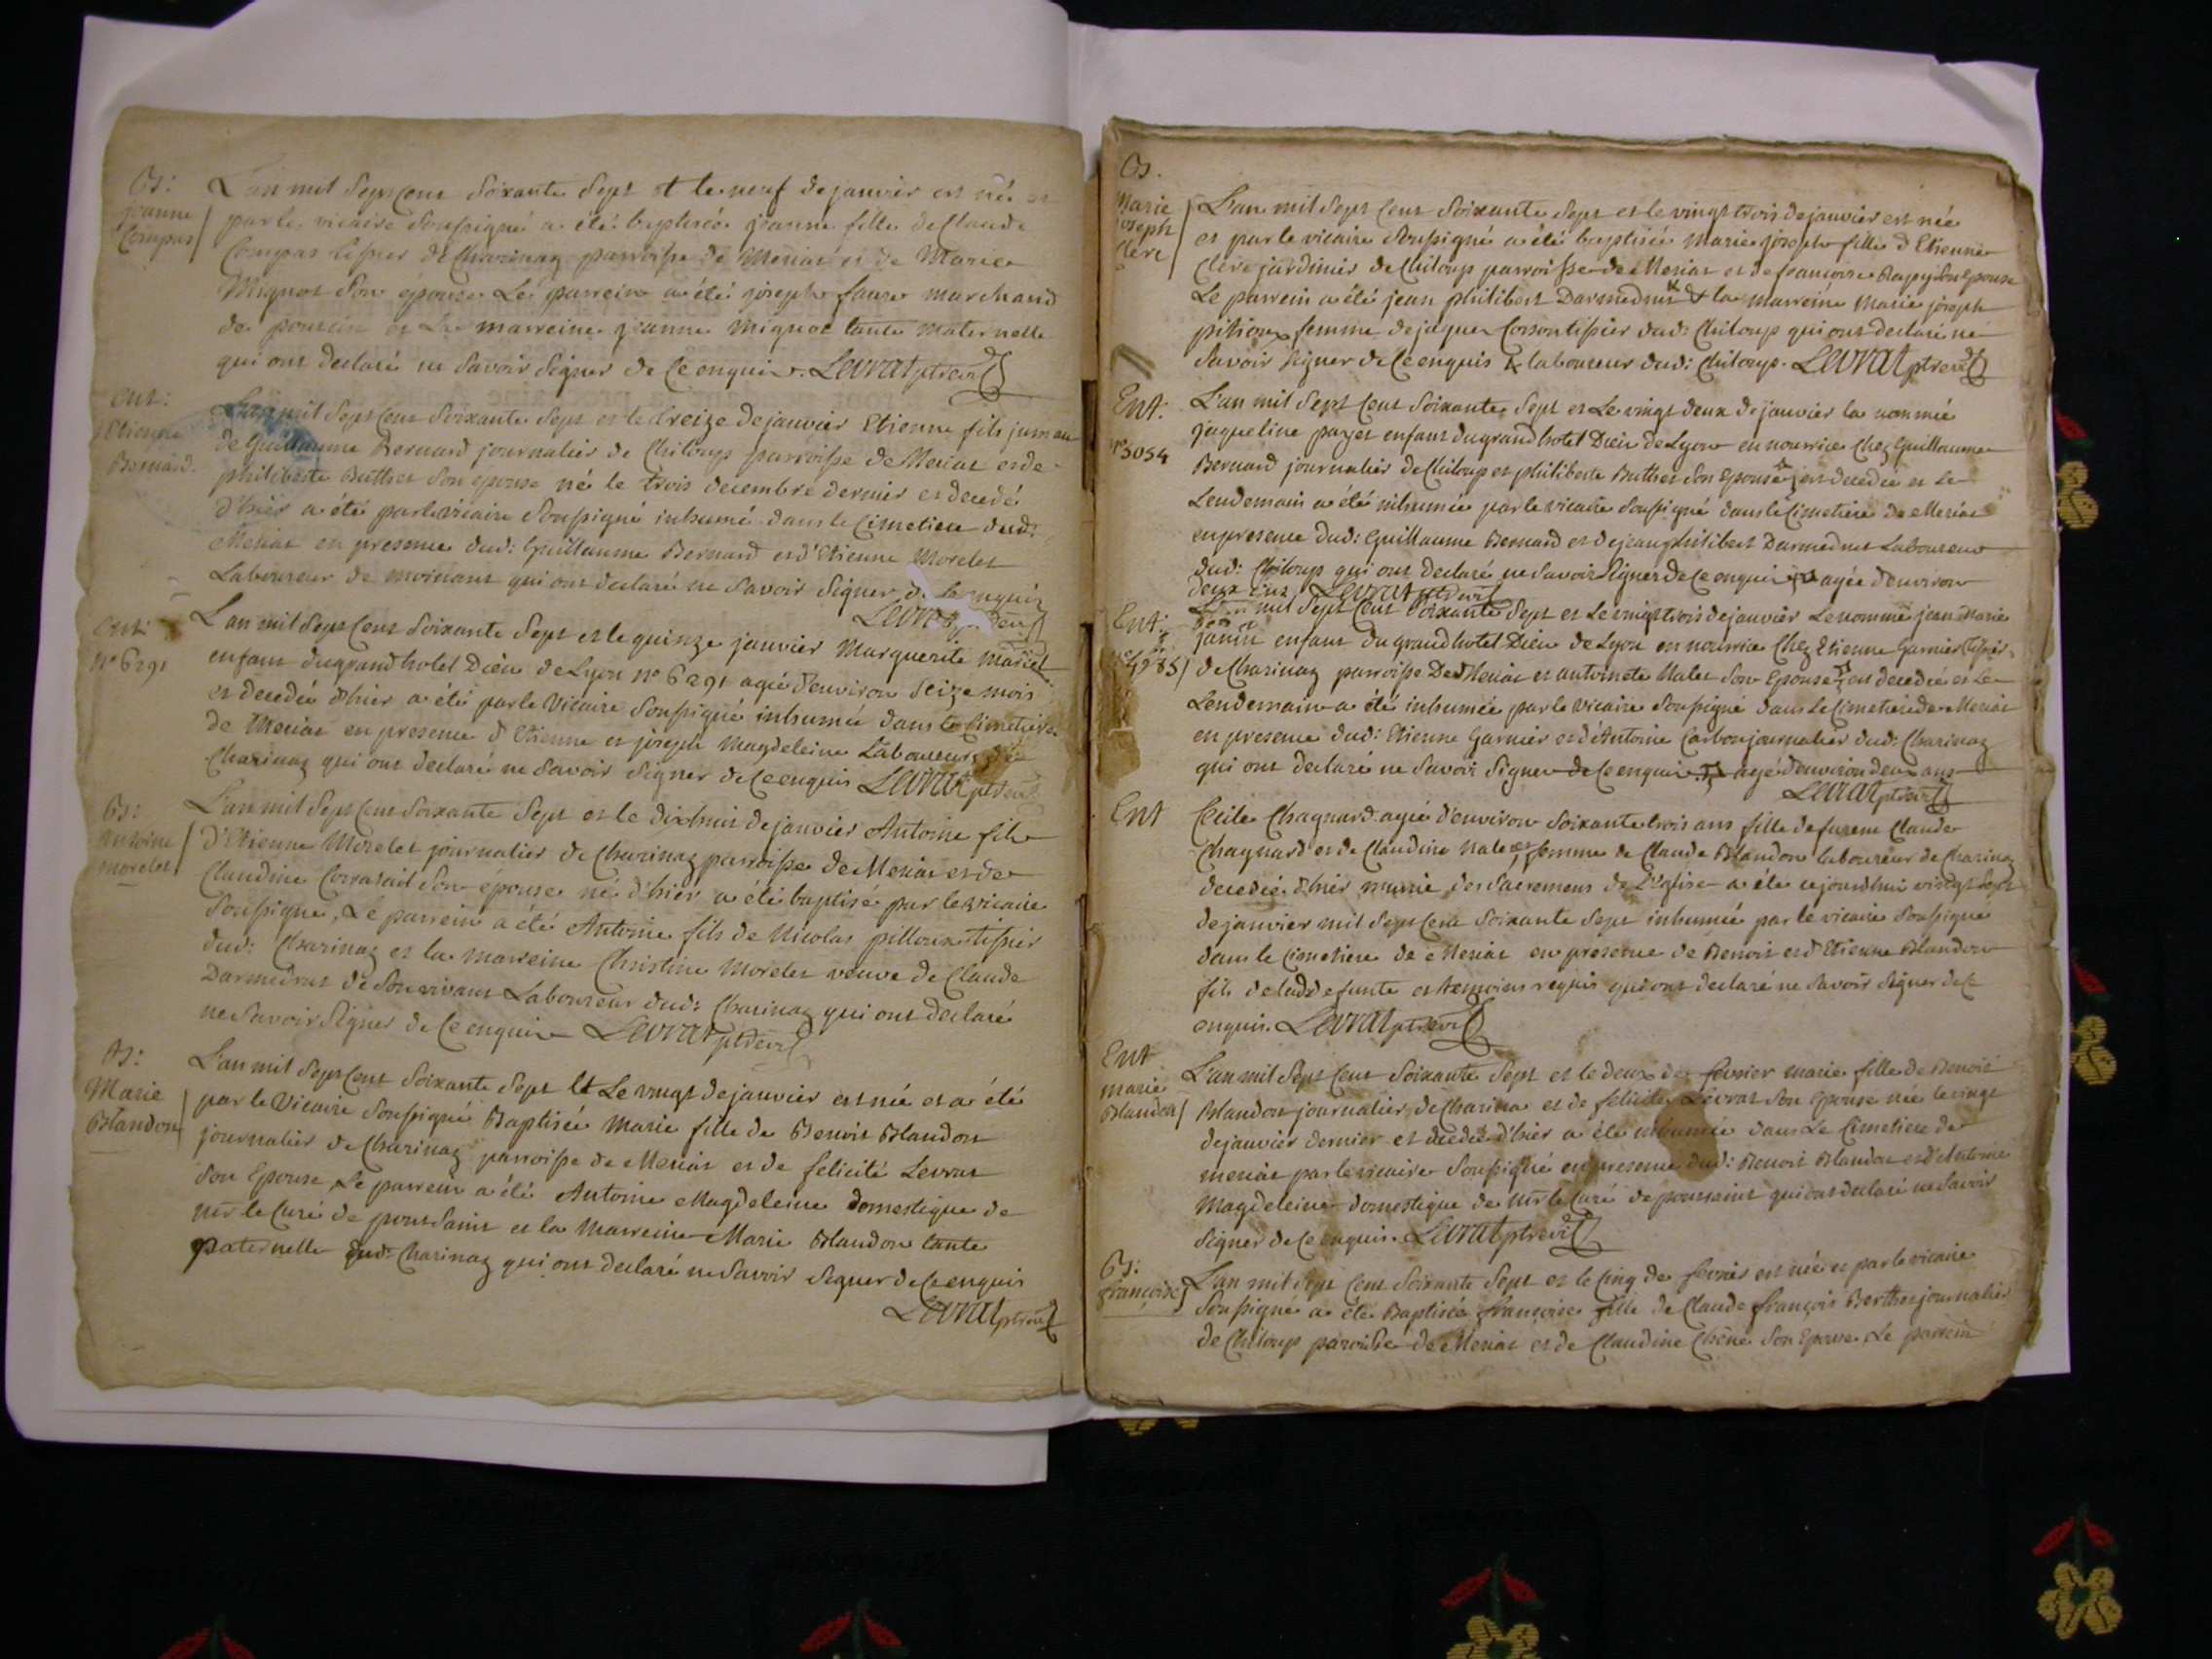 B:
jeanne
Compas
L'an mil Sept Cent Soixante Sept et le neuf de janvier est née et
par le vicaire Soussigné a été baptisée jeanne fille de Claude
Compas tissier de Charinaz parroisse de Meriat et de Marie
Mignot Son epouse Le parrein a été joseph faure marchand
de poncin et La marreine jeanne Mignot tante maternelle
qui ont declaré ne Savoir Signer de Ce enquis. Levrat ptre vic
Ent:
Etienne
Bernard.
L'an mil Sept Cent Soixante Sept et le treize de janvier Etienne fils jumeau
de Guillaume Bernard journalier de Chiloup parroisse de Meriat et de
philiberte Buttet Son epouse né le trois decembre dernier et decedé
d'hier a été par le vicaire Soussigné inhumé dans le Cimetiere dud:
Meriat en presence dud: Guillaume Bernard et d'Etienne Morelet
Laboureur de qui ont declaré ne Savoir Signer de Ce enquis
Levrat
Ent:
n° 6291
L'an mil Sept Cent Soixante Sept et le quinze janvier Marguerite
enfant du grand hotel Dieu de Lyon n° 6291 agée d'environ Seize mois
et decedée d'hier a été par le Vicaire Soussigné inhumée dans le Cimetiere
de Meriat en presence d'Etienne et joseph Magdeleine Laboureurs de
Charinaz qui ont declaré ne Savoir Signer de Ce enquis Levrat ptre vic
B:
Antoine
morelet
L'an mil Sept Cent Soixante Sept et le dixhuit de janvier Antoine fils
d'Etienne Morelet journalier de Charinaz parroisse de Meriat et de
Claudine Son épouse né d'hier a été baptisé par le vicaire
Soussigné, Le parrein a été Antoine fils de Nicolas pilloux tissier
dud: Charinaz et la marreine Christine Morelet veuve de Claude
Darmedrut de Son vivant Laboureur dud: Charinaz qui ont declaré
ne Savoir Signer de Ce enquis Levrat ptre vic
B:
Marie
Blandon
L'an mil Sept Cent Soixante Sept et Le vingt de janvier est née et a été
par le Vicaire Soussigné Baptisée Marie fille de Benoit Blandon
journalier de Charinaz parroisse de Meriat et de felicité Levrat
Son Epouse Le parrein a été Antoine Magdeleine domestique de
mr le Curé de pour Saint et la Marreine Marie Blandon tante
paternelle dud: Charinaz qui ont declaré ne Savoir Signer de Ce enquis
Levrat ptre vic
B.
Marie
joseph
Clere
L'an mil Sept Cent Soixante Sept et le vingt trois de janvier est née
et par le vicaire Soussigné a été baptisée Marie joseph fille d'Etienne
Clere jardinier de Chiloup parroisse de Meriat et de francoise Son Epouse
Le parrein a été jean philibert Darmedrut & la marreine Marie joseph
femme de jaques tissier dud: Chiloup qui ont declaré ne
Savoir Signer de Ce enquis laboureur dud: Chiloup. Levrat ptre vic
Ent.
n° 5054
L'an mil Sept Cent Soixante Sept et Le vingt deux de janvier la nommée
jaqueline payet enfant du grand hotel Dieu de Lyon en nourrice Chez Guillaume
Bernard journalier de Chiloup et philiberte Buttet Son Epouse est decedée et Le
Lendemain a été inhumée par le vicaire Soussigné dans le Cimetiere de Meriat
en presence dud: Guillaume Bernard et de jean philibert Darmedrut Laboureur
dud: Chiloup qui ont declaré ne Savoir Signer de Ce enquis agée d'environ
deux ans. Levrat ptre vic
Ent:
L'an mil Sept Cent Soixante Sept et Le vingt trois de janvier Le nommé jean Marie
enfant du grand hotel Dieu de Lyon en nourrice Chez Etienne Garnier tissier
de Charinaz parroisse De Meriat et antoinete Son Epouse est decedé et Le
Lendemain a été inhumée par le vicaire Soussigné dans Le Cimetiere de Meriat
en presence dud: Etienne Garnier et d'Antoine Carbon journalier dud: Charinaz
qui ont declaré ne Savoir Signer de Ce enquis. agé d'environ deux ans
Levrat ptre vic
Ent
Cecile Chagnard agée d'environ Soixante trois ans fille de Claude
Chagnard et de Claudine femme de Claude Blandon laboureur de Charinaz
decedée d'hier munie des Sacremens de L'Eglise a été cejourdhui vingt Sept
de janvier mil Sept Cent Soixante Sept inhumée par le vicaire Soussigné
dans le Cimetiere de Meriat en presence de Benoit et d'Etienne Blandon
fils de lad: defunte et temoins requis qui ont declaré ne Savoir Signer de Ce
enquis. Levrat ptre vic
Ent
marie
Blandon
L'an mil Sept Cent Soixante Sept et le deux de fevrier marie fille de Benoit
Blandon journalier de Charinaz et de felicité Levrat Son Epouse née le vingt
de janvier dernier et decedée d'hier a été inhumée dans Le Cimetiere de
meriat par le vicaire Soussigné en presence dud: Benoit Blandon et d'Antoine
Magdeleine domestique de mr le Curé de poursaint qui ont declaré ne Savoir
Signer de Ce enquis. Levrat ptre vic
B:
françoise
L'an mil Sept Cent Soixante Sept et le Cinq de fevrier est née et par le vicaire
Soussigné a été Baptisée françoise fille de Claude françois Berthet journalier
de Chiloup paroisse de Meriat et de Claudine Chêne Son Epouse. Le parrein